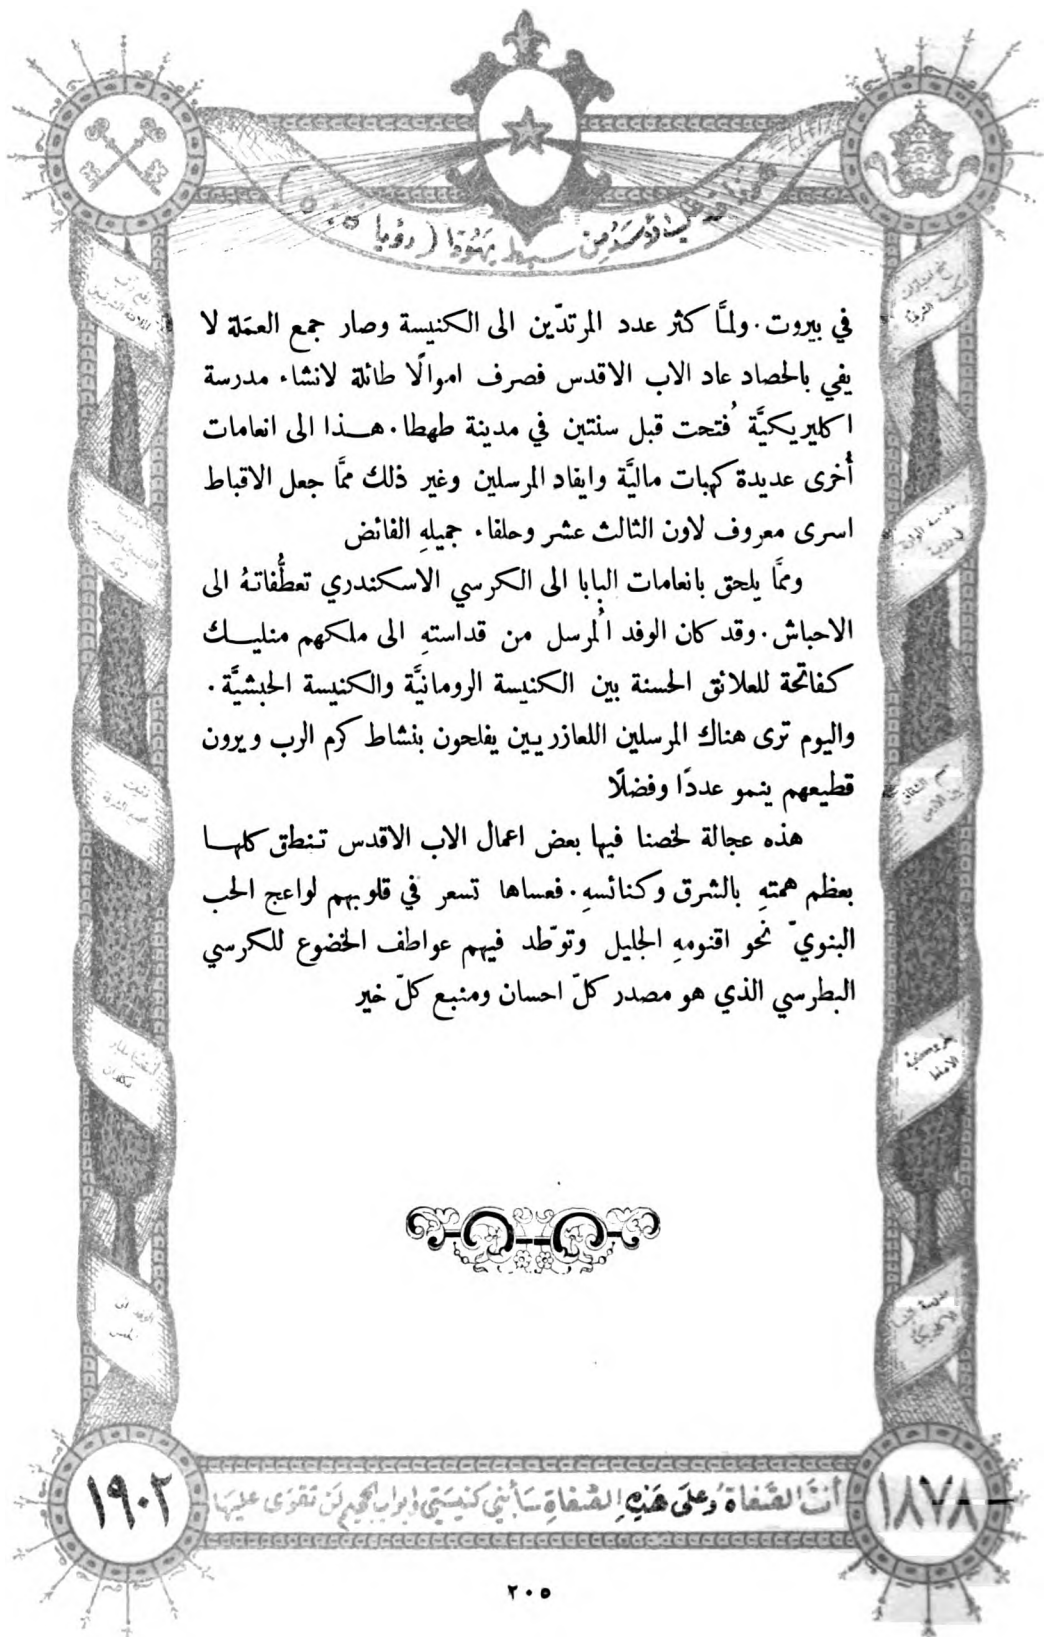 من سبط يهوذا (رؤيا
في بيروت. ولمَّا كثر عدد المرتدّين الى الكنيسة وصار جمع العمَلة لا
يفي بالحصاد عاد الاب الاقدس فصرف اموالًا طائلة لانشاء مدرسة
اكليريكيَّة فُتحت قبل سنتين في مدينة طهطا. هـذا الى انعامات
أُخرى عديدة كهبات ماليَّة وايفاد المرسلين وغير ذلك ممَّا جعل الاقباط
اسرى معروف لاون الثالث عشر وحلفاء جميلهِ الفائض
وممَّا يلحق بانعامات البابا الى الكرسي الاسكندري تعطُّفاتهُ الى
الاحباش. وقد كان الوفد المُرسل من قداستهِ الى ملكهم منليـك
كفاتحة للعلائق الحسنة بين الكنيسة الرومانيَّة والكنيسة الحبشيَّة.
واليوم ترى هناك المرسلين اللعازريين يفلحون بنشاط كرم الرب ويرون
قطيعهم ينمو عددًا وفضلًا
هذه عجالة لخصنا فيها بعض اعمال الاب الاقدس تنطق كلهـا
بعظم همتهِ بالشرق وكنائسهِ. فعساها تسعر في قلوبهم لواعج الحب
البنويّ نحو اقنومهِ الجليل وتوّطد فيهم عواطف الخضوع للكرسي
البطرسي الذي هو مصدر كلّ احسان ومنبع كلّ خير
١٨٧٨
أنتَ الصَّفاة وُعلى هَذِهِ الصَّفاةِ سَأبني كنيستي وأبواب الجحيم لَن تقوَى عليهَا
١٩٠٢
٢٠٥